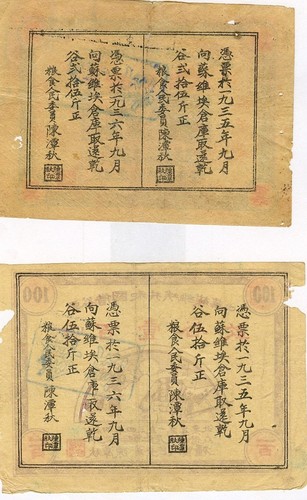 憑票於一九三五年九月
向蘇維埃倉庫取還乾
谷弍拾伍斤正
粮食人民委員陳潭秋
憑票於一九三六年九月
向蘇維埃倉庫取還乾
谷弍拾伍斤正
粮食人民委員陳潭秋
憑票於一九三五年九月
向蘇維埃倉庫取還乾
谷伍拾斤正
粮食人民委員陳潭秋
憑票於一九三六年九月
向蘇維埃倉庫取還乾
谷伍拾斤正
粮食人民委員陳潭秋
100
100